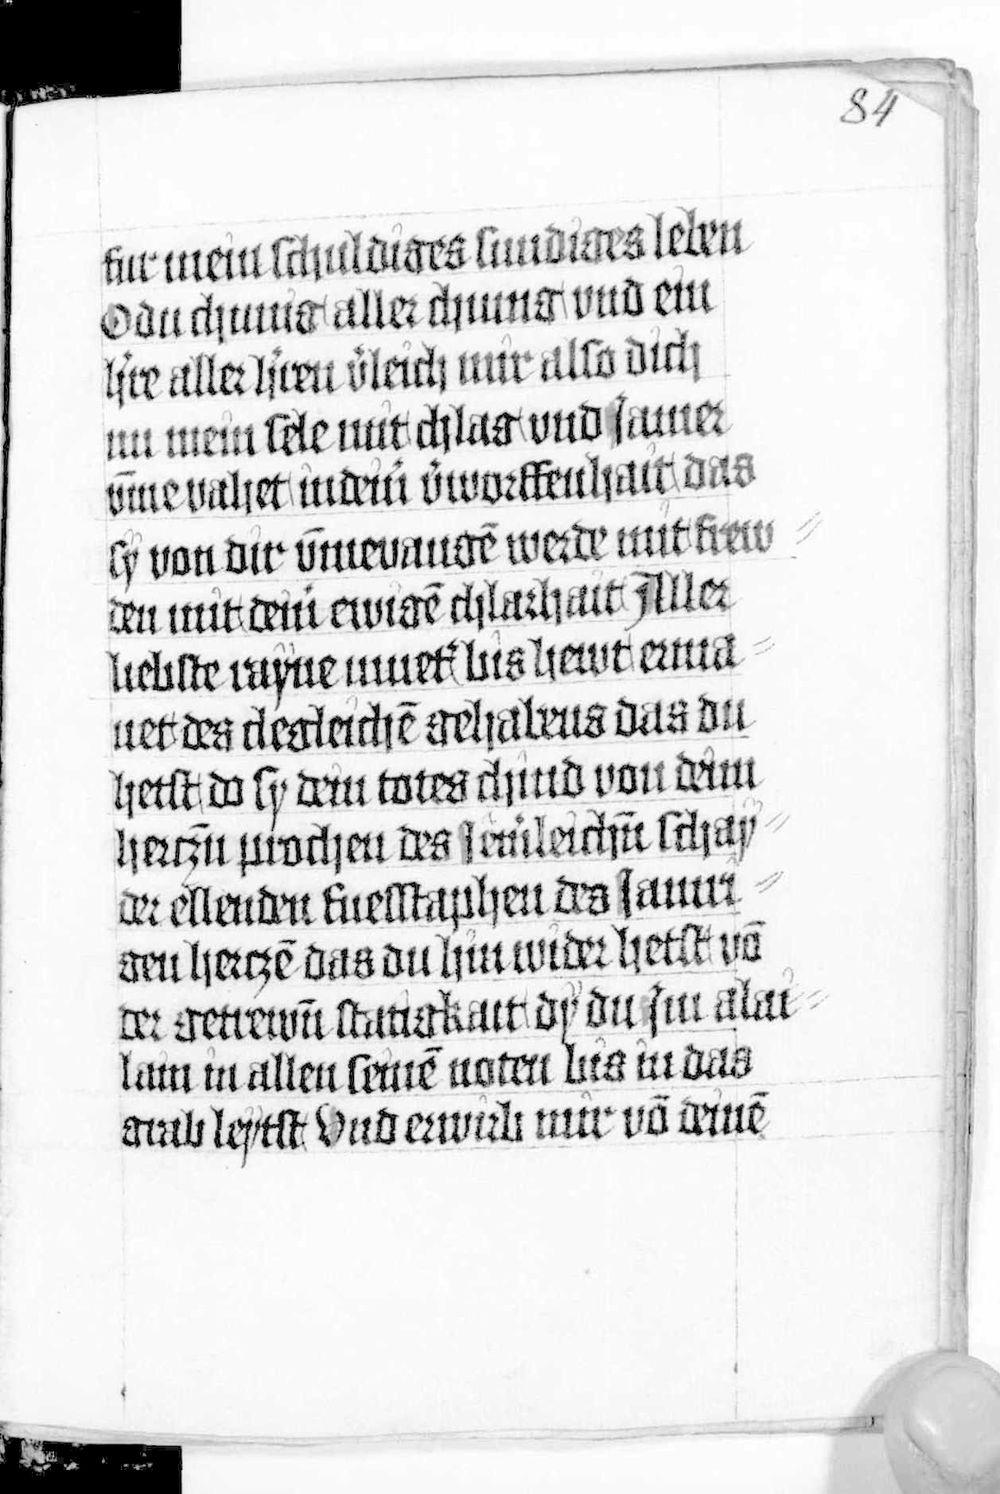 84
fur mein schuldiges sundiges leben
O du chunig aller chung vnd ein
h͛re aller h͛ren v͛leich mir also dich
nu mein sele mit chlag vnd Jamer
vm̄e vahet in dein͛ v͛worffenhait das
sÿ von dir vm̄evangē werde mit frew //
den mit dein͛ ewigē chlarhait Aller
liebste rayne muet͛ bis hewt erma //
net des chleglichē gehabens das du
hetst do sy dein totes chind von deim
herczn̄ prochen des Jem͛leichn̄ schay //
der ellenden fuesstaphen des Jamri //
gen herczē das du hin wider hetst vō
der getrewn̄ statigkait dÿ du Jm alai //
lain in allen seinē noten bis in das
grab leytst Vnd erwirb mir vō deinē